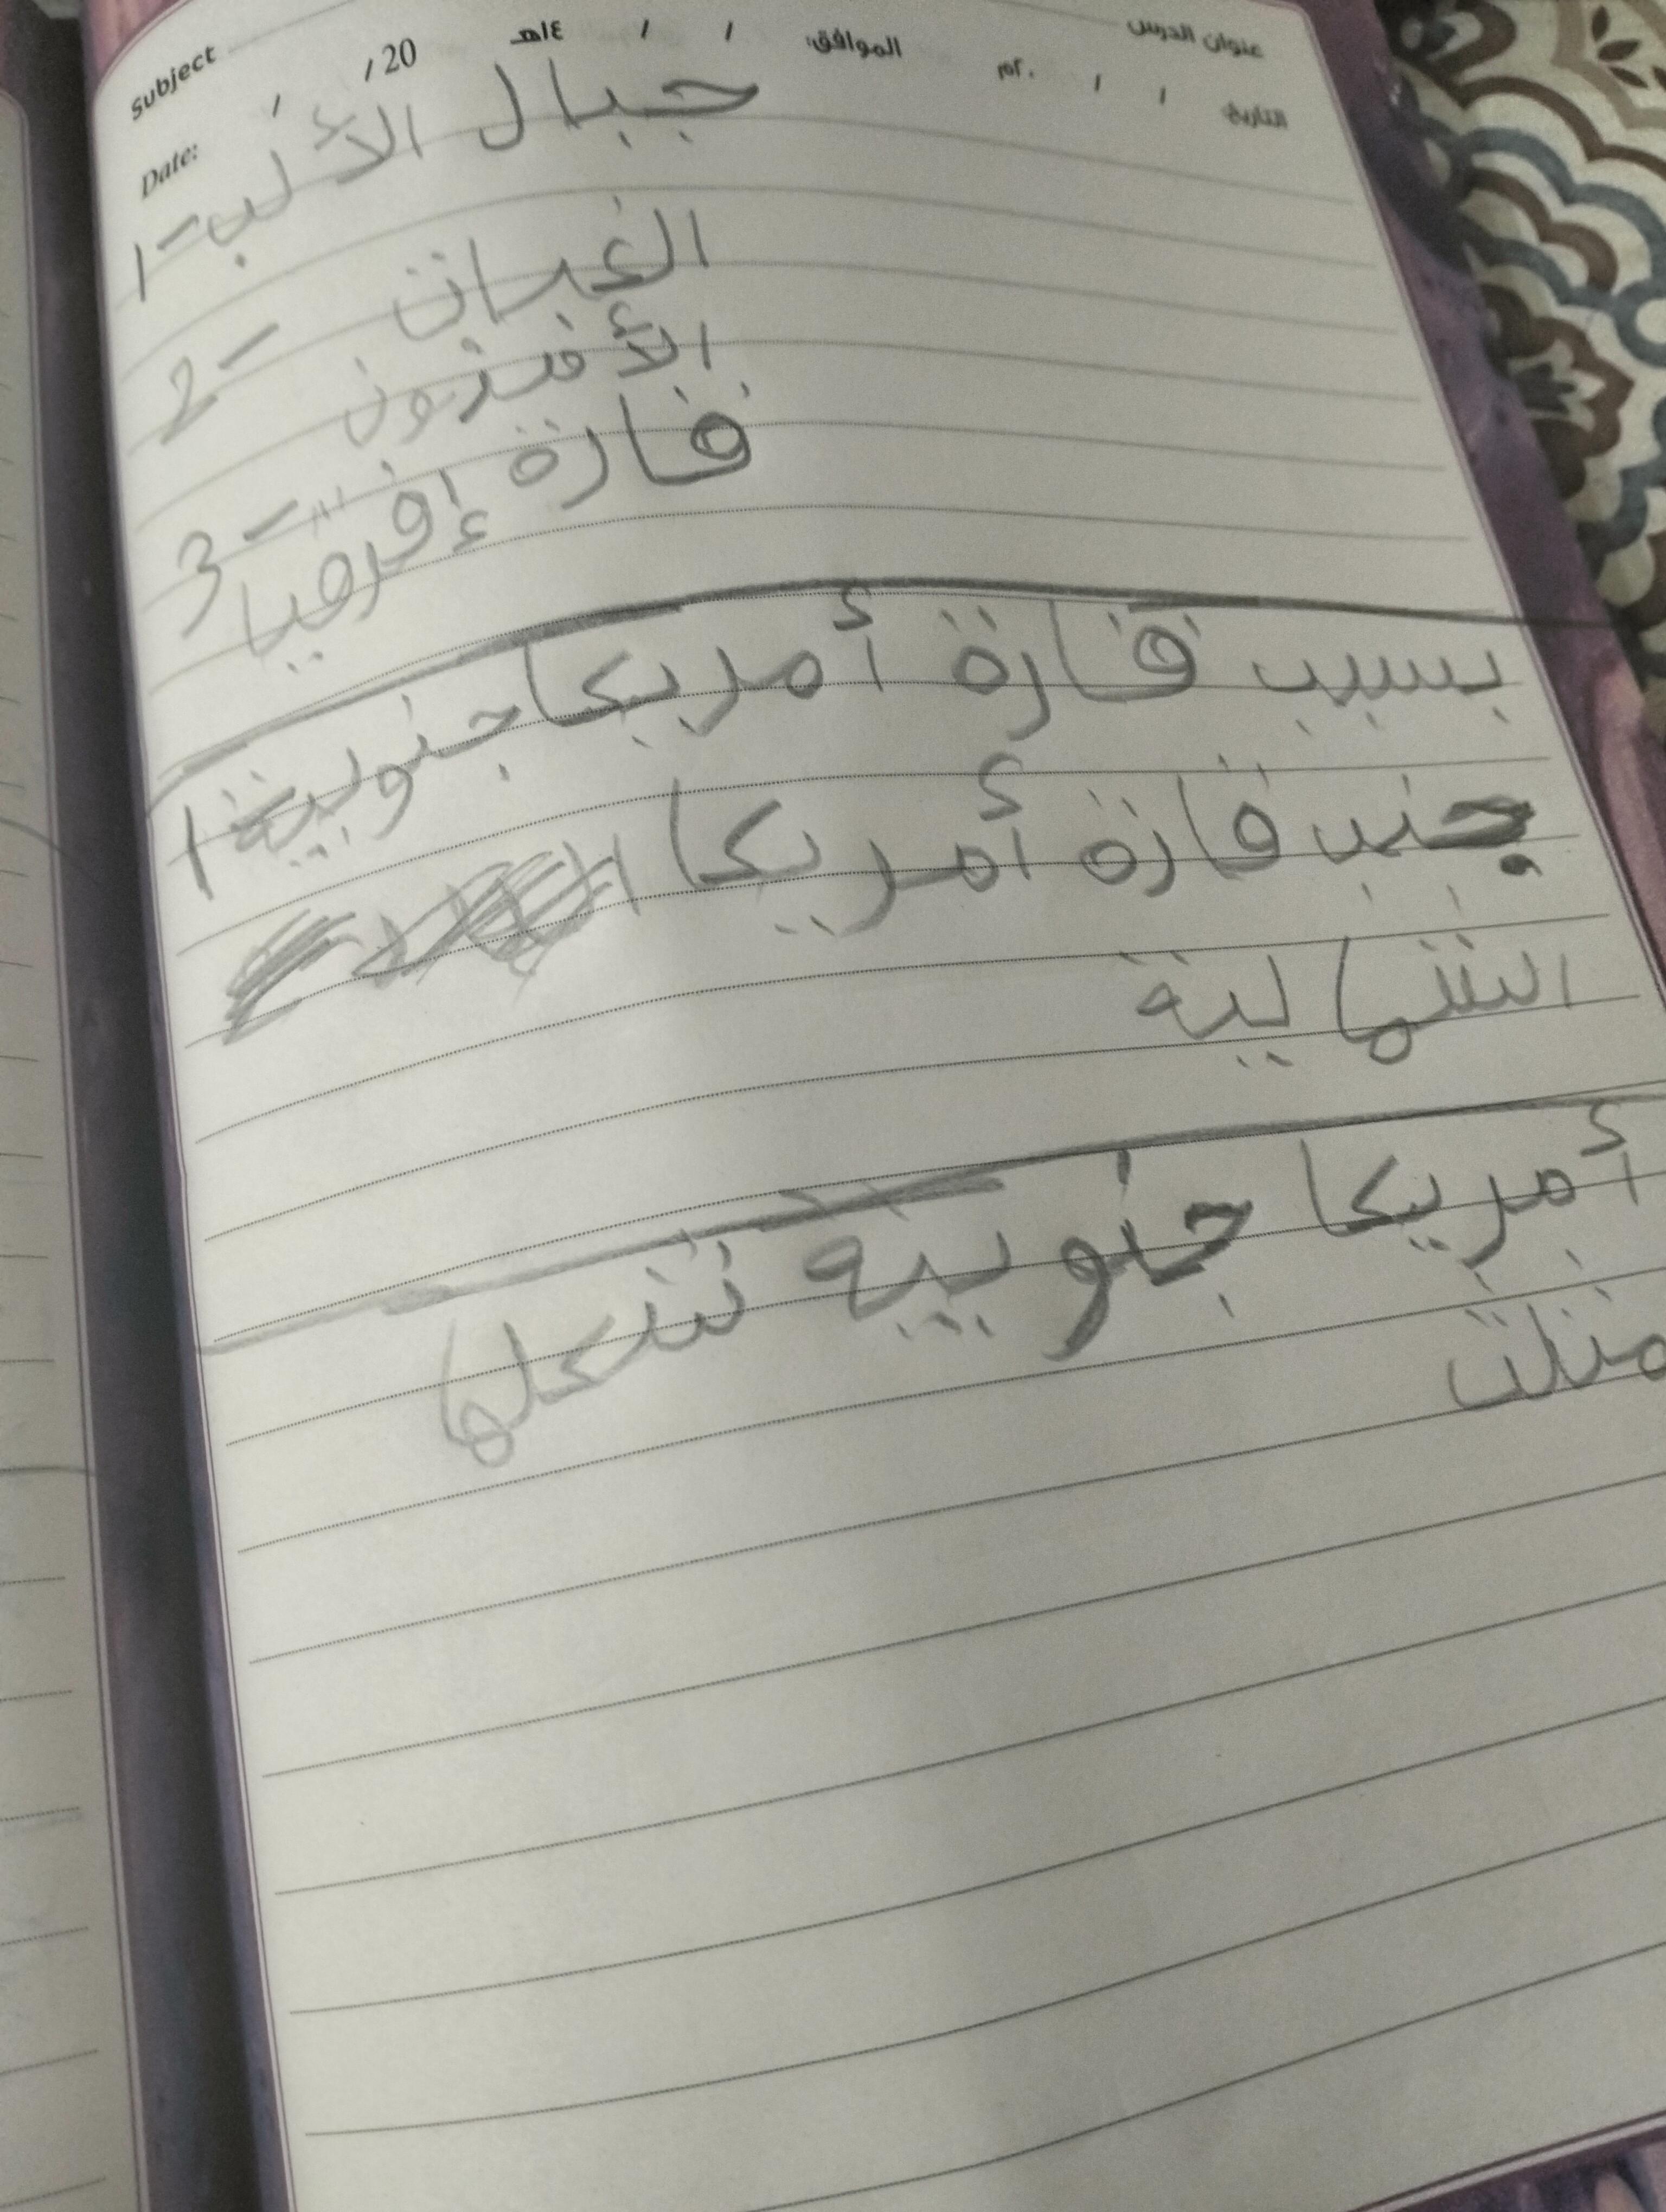 عنوان الدرس Subject
التاريخ: / / ٢٠م الموافق: / / ١٤هـ Date: / / 20
جبال الألب -1
الغبات 2 -
الأفنزون
قارة إفرقيا 3 -
بسبب قارة أمريكا جنوبية 1
جنب قارة أمريكا
الشمالية
أمريكا جنوبية شكلها
مثلث